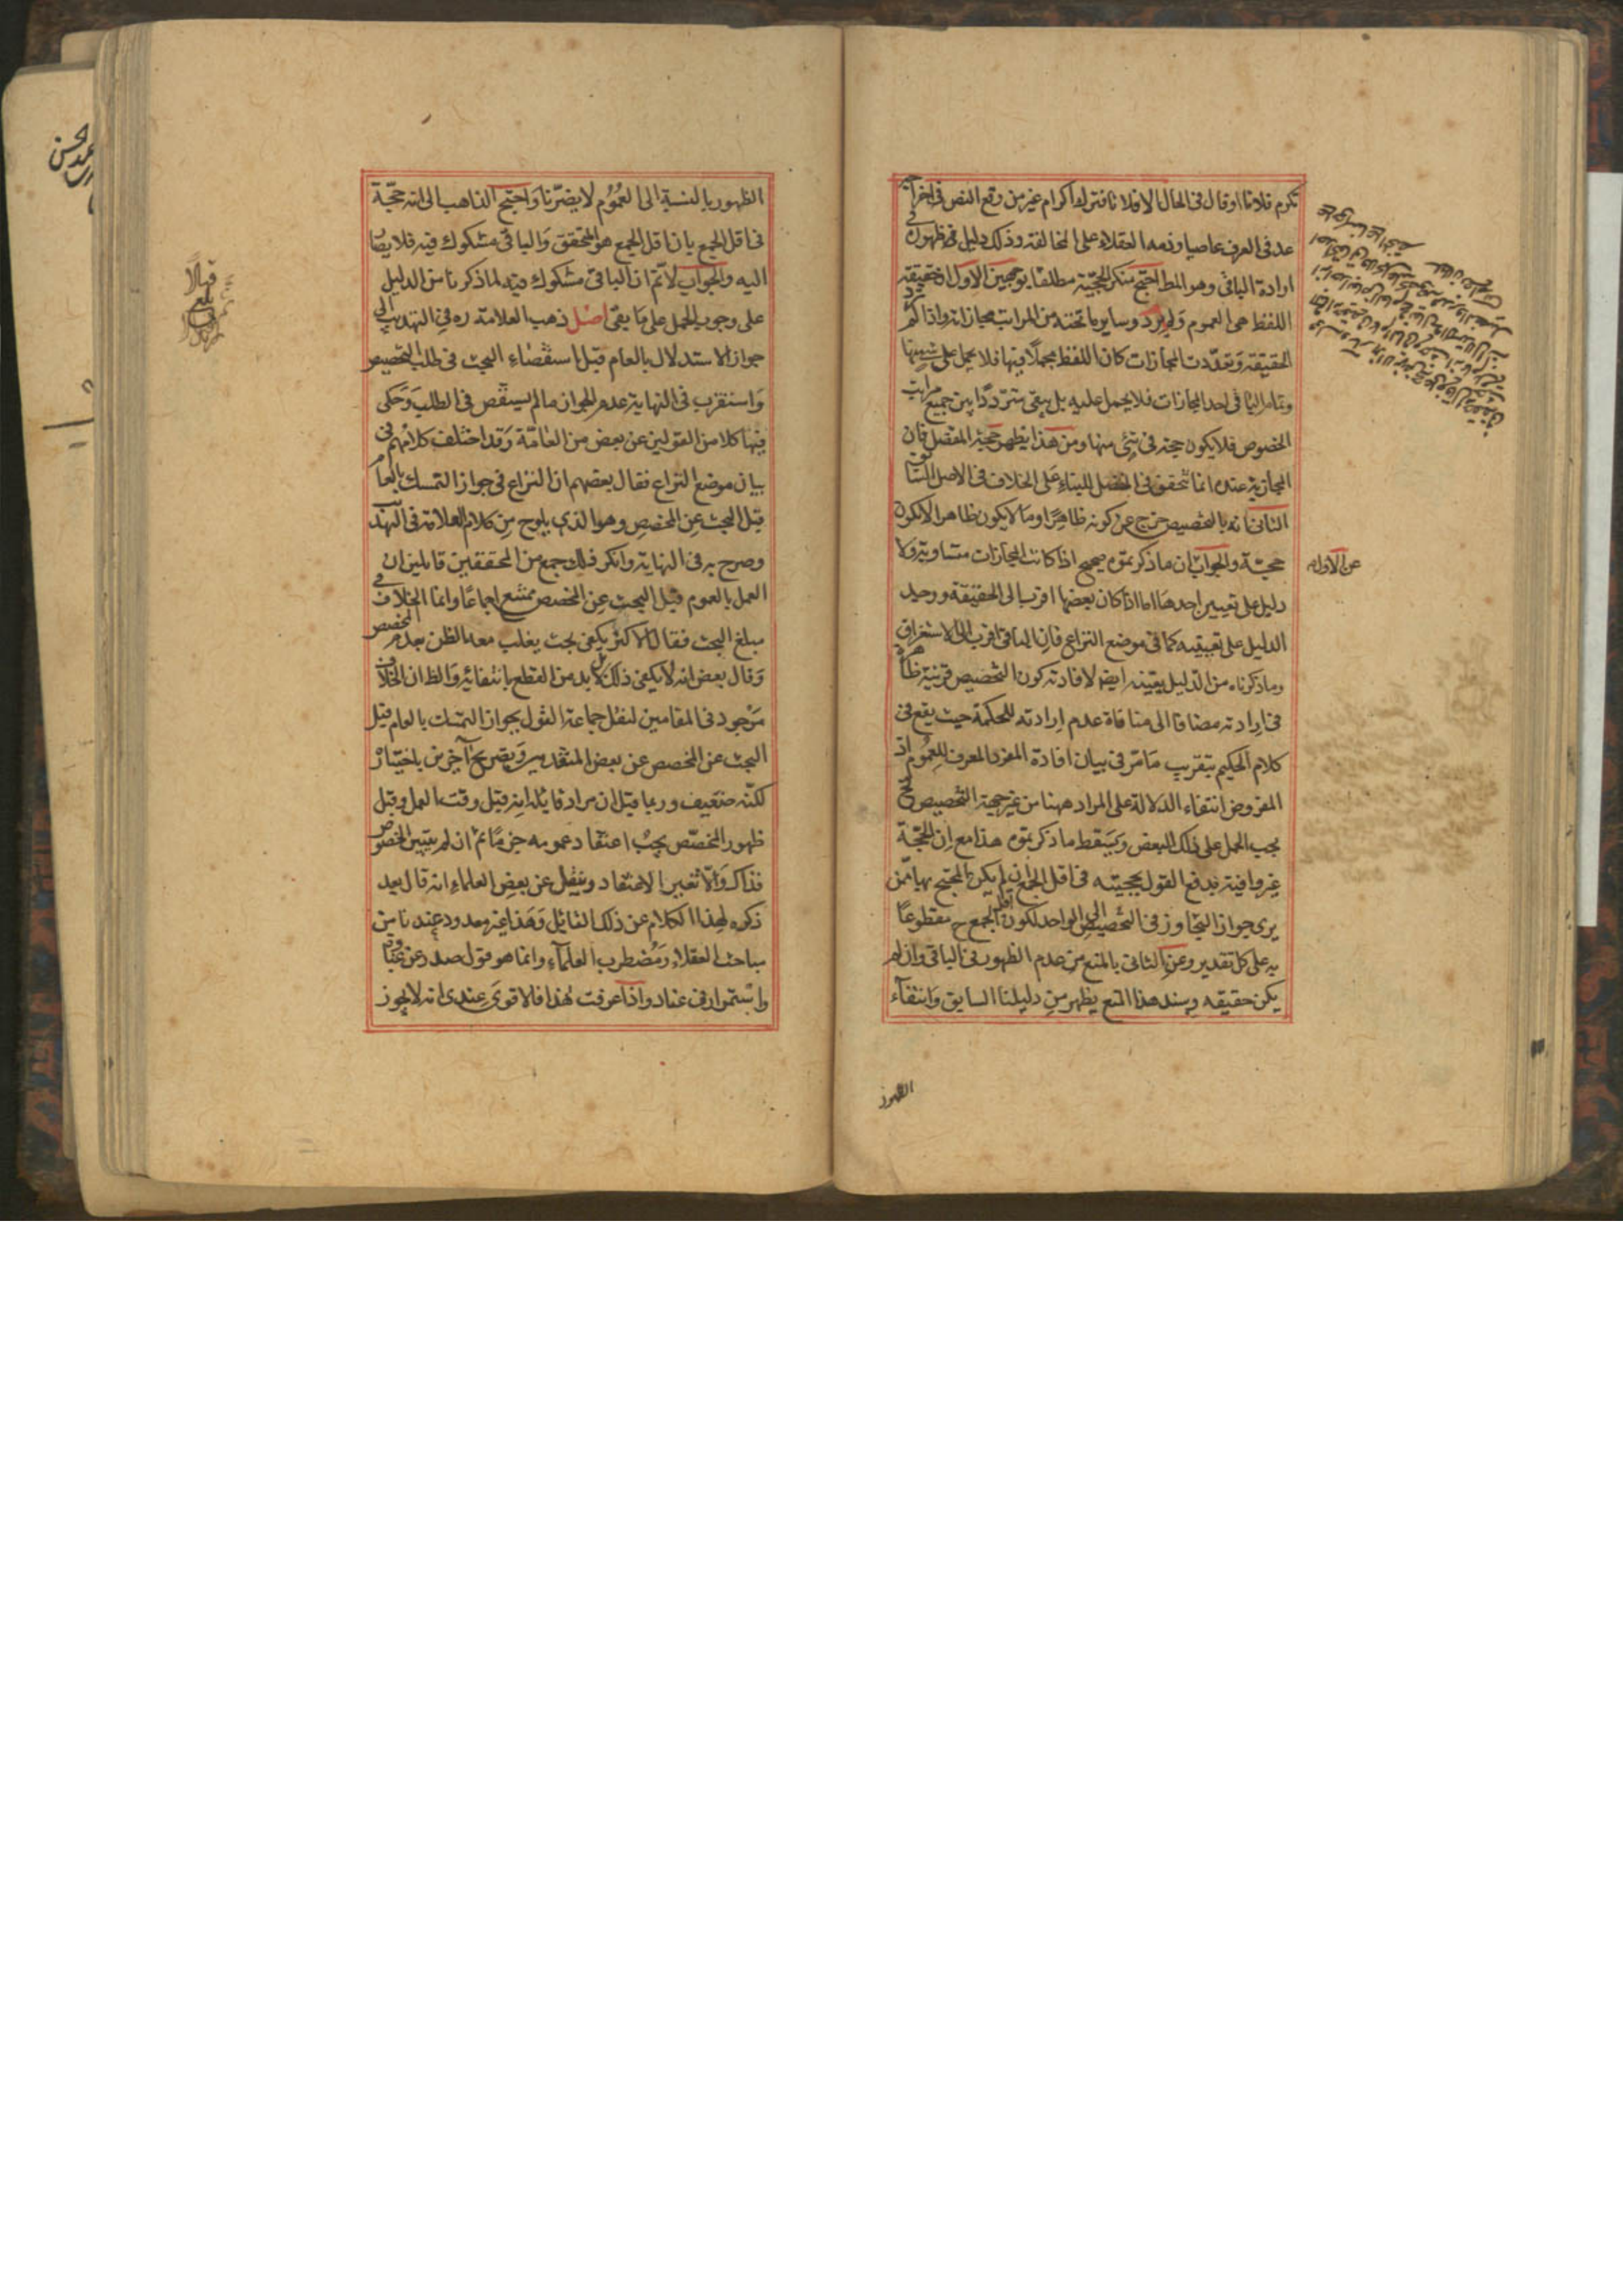 تكرم فلانا او قال في الحال الا فلانا فترك اكرام غير من وقع النص في اخراجه
عد في العرف عاصيا وذمه العقلاء على المخالفة وذلك دليل في ظهوره في
ارادة الباقي وهو المط احتج منكر الحجية مطلقا بوجهين الاول ان حقيقة
اللفظ هي العموم ولم يرد وساير ما تحته من المراتب مجازاته واذا لم ترد
الحقيقة وتعددت المجازات كان اللفظ مجملا فيها فلا يحمل على شئ منها
وتمام الباقي احد المجازات فلا يحمل عليه بل يبقى مترددا بين جميع مراتب
الخصوص فلا يكون حجة في شئ منها ومن هذا يظهر حجة المفصل فان
المجازية عنده انما تتحقق في المنفصل للبناء على الخلاف في الاصل السابق
الثاني انه بالتخصيص خرج عن كونه ظاهرا وما لا يكون ظاهرا لا يكون
حجة والجواب ان ما ذكرتموه صحيح اذا كانت المجازات متساوية ولا
عن الاول
دليل على تعيين احدها اما اذا كان بعضها اقرب الى الحقيقة ووجد
الدليل على تعيينه كما في موضع النزاع فان الباقي اقرب الى الاستغراق
وما ذكرناه من الدليل يعينه ايضا لافادته كون التخصيص قرينة ظاهرة
في ارادته مضافا الى منافاة عدم ارادته للحكمة حيث يقع في
كلام الحكيم بتقريب ما مر في بيان افادة المفرد المعرف للعموم اذ
المفروض انتفاء الدلالة على المراد ههنا من غير جهة التخصيص فح
يجب الحمل على ذلك البعض ويسقط ما ذكرتموه هذا مع ان الحجة
غير وافية بدفع القول بحجيته في اقل الجمع ان لم يكن المحتج بها ممن
يرى جواز التجاوز في التخصيص الى الواحد لكون اقل الجمع ح مقطوعا
به على كل تقدير وعن الثاني بالمنع من عدم الظهور في الباقي وان لم
يكن حقيقة وسند هذا المنع يظهر من دليلنا السابق وانتفاء
الظهور
الظهور بالنسبة الى العموم لا يضرنا واحتج الذاهب الى انه حجة
في اقل الجمع بان اقل الجمع هو المتحقق والباقي مشكوك فيه فلا يصار
اليه والجواب لا نم ان الباقي مشكوك فيه لما ذكرنا من الدليل
على وجوب الحمل على ما بقى اصل ذهب العلامة ره في التهذيب الى
جواز الاستدلال بالعام قبل استقصاء البحث في طلب التخصيص
واستقرب في النهاية عدم الجواز ما لم يستقص في الطلب وحكى
فيها كلا من القولين عن بعض من العامة وقد اختلف كلامهم في
بيان موضع النزاع فقال بعضهم ان النزاع في جواز التمسك بالعام
قبل البحث عن المخصص وهو الذي يلوح من كلام العلامة في التهذيب
وصرح به في النهاية وانكر ذلك جمع من المحققين قايلين ان
العمل بالعموم قبل البحث عن المخصص ممتنع اجماعا وانما الخلاف في
مبلغ البحث فقال الاكثر يكفي بحث يغلب معه الظن بعدم المخصص
وقال بعض انه لا يكفي ذلك بل لا بد من القطع بانتفائه والظ ان الخلاف
موجود في المقامين لنقل جماعة القول بجواز التمسك بالعام قبل
البحث عن المخصص عن بعض المتقدمين وتصريح آخرين باختياره
لكنه ضعيف وربما قيل ان مراد قايله انه قبل وقت العمل وقبل
ظهور المخصص يجب اعتقاد عمومه جزما ثم ان لم يتبين الخصوص
فذاك والا تغير الاعتقاد وينقل عن بعض العلماء انه قال بعد
ذكره لهذا الكلام عن ذلك القائل وهذا غير معدود عندنا من
مباحث العقلاء ومضطرب العلماء وانما هو قول صدر عن غباوة
واستمرار في عناد واذا عرفت هذا فالاقوى عندي انه لا يجوز